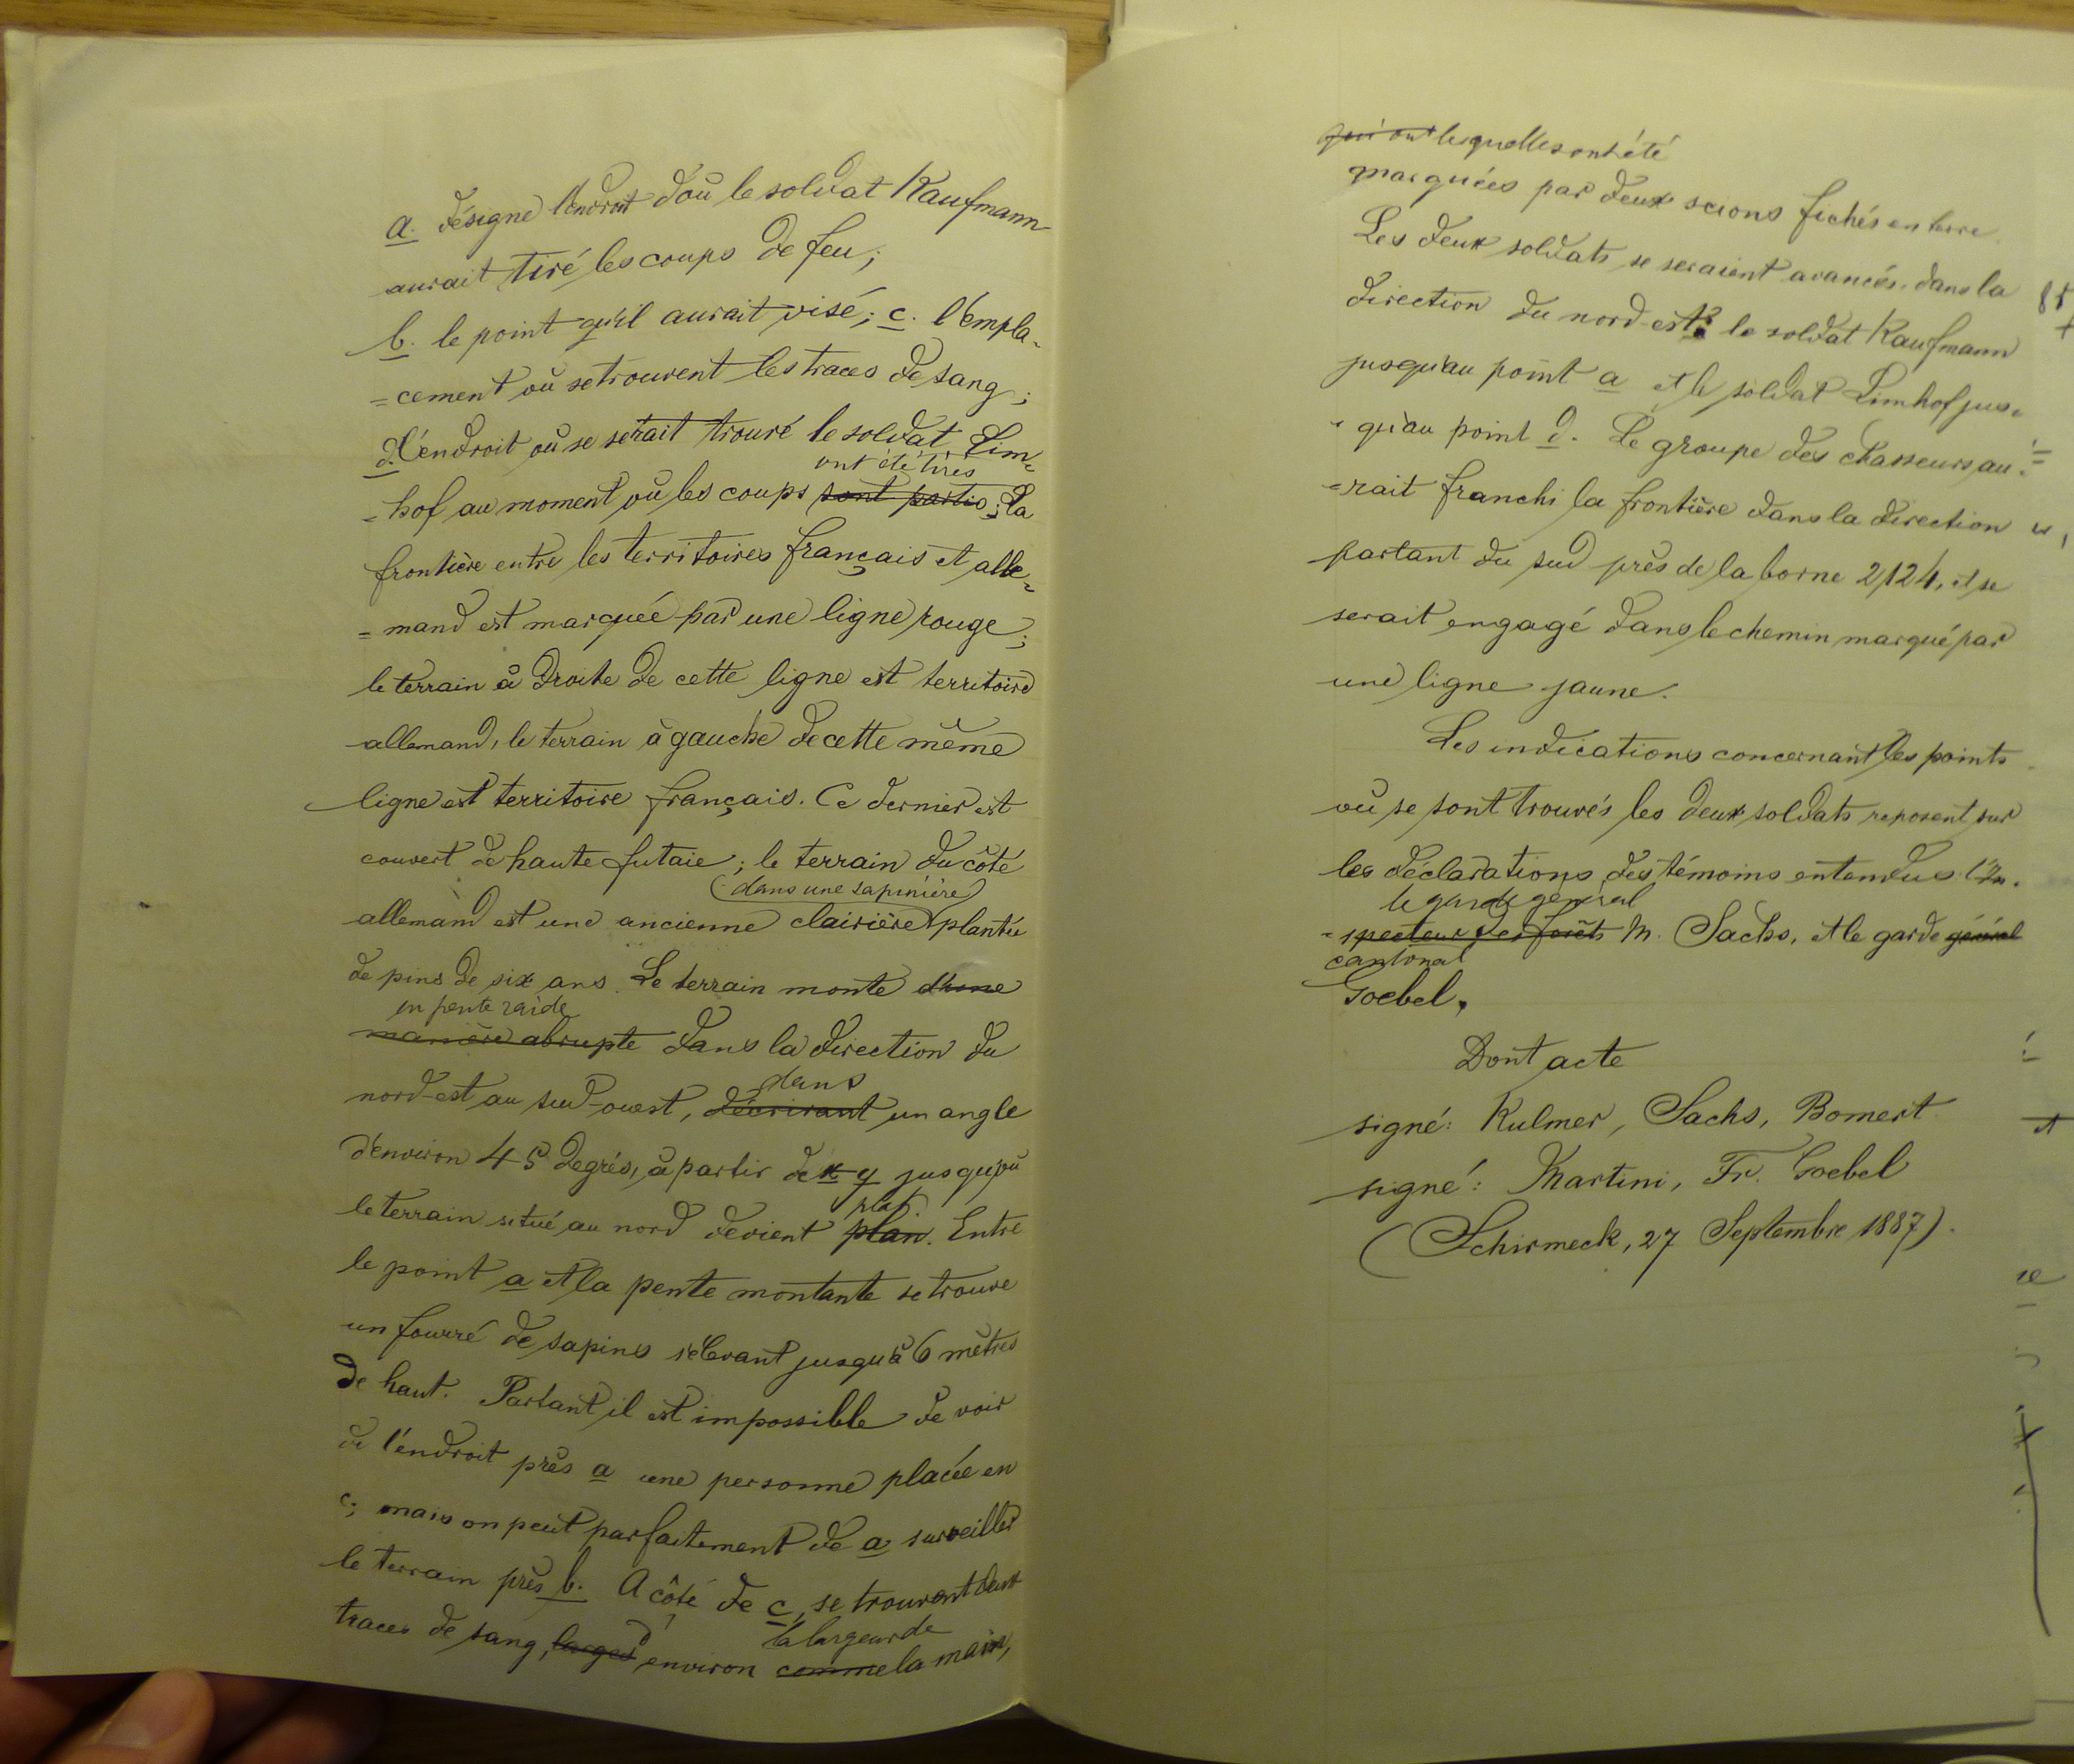 a. désigne l'endroit d'où le soldat Kaufmann
aurait tiré les coups de feu;
b. le point qu'il aurait visé; c. l'empla-
=cement où se trouvent les traces de sang;
d. l'endroit où se serait trouvé le soldat Lim-
ont été tirés
=hof au moment où les coups sont partis; la
frontière entre les territoires français et alle-
=mand est marquée par une ligne rouge;
le terrain à droite de cette ligne est territoire
allemand, le terrain à gauche de cette même
ligne est territoire français. Ce dernier est
couvert de haute futaie; le terrain du côté
(dans une sapinière)
allemand est une ancienne clairière plantée
de pins de six ans. Le terrain monte d'une
en pente raide
manière abrupte dans la direction du
dans
nord-est au sud-ouest, décrivant un angle
d'environ 45 degrés, à partir de x y jusqu'où
plat.
le terrain situé au nord devient plan. Entre
le point a et la pente montante se trouve
un fourré de sapins s'élevant jusqu'à 6 mètres
de haut. Partant il est impossible de voir
de l'endroit près a une personne placée en
c; mais on peut parfaitement de a surveiller
le terrain près b. A côté de c, se trouvent deux
la largeur de
traces de sang, larges d'environ comme la main,
qui ont lesquelles ont été
marquées par deux scions fichés en terre.
Les deux soldats se seraient avancés dans la
direction du nord-est: le soldat Kaufmann
jusqu'au point a et le soldat Limhof jus-
qu'au point d. Le groupe des chasseurs au-
=rait franchi la frontière dans la direction
partant du sud près de la borne 2124, et se
serait engagé dans le chemin marqué par
une ligne jaune.
Les indications concernant les points
où se sont trouvés les deux soldats reposent sur
les déclarations des témoins entendus l'In-
le garde général
=specteur des forêts M. Sachs, et le garde général
cantonal
Goebel.
Dont acte
signé: Kulmer, Sachs, Bomert
signé: Martini, Fr. Goebel
(Schirmeck, 27 Septembre 1887).